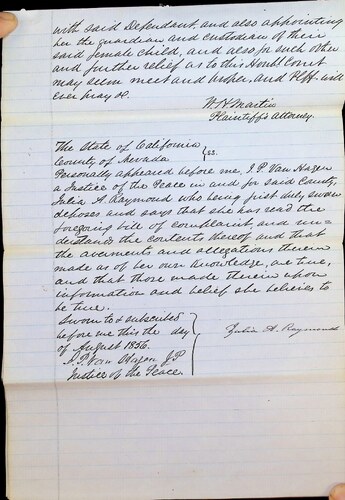 with said Defendant and also appointing
her the guardian and custodian of their
said female child, and also for such other
and further relief as to this Honbl Court
may seem meet and proper and Plff will
ever pray &c.
W. H. Martin
Plaintiff's Attorney.
The State of California
County of Nevada } ss.
Personally appeared before me, I. P. Van Hagen
a Justice of the Peace in and for said County,
Julia A. Raymond who being first duly sworn
deposes and says that she has read the
foregoing bill of complaint and un=
derstands the contents thereof and that
the averments and allegations therein
made as of her own knowledge, are true,
and that those made therein upon
information and belief she believes to
be true.
Sworn to & subscribed
before me this the day
of August 1856.
Julia A. Raymond
I. P. Van Hagen J.P.
Justice of the Peace